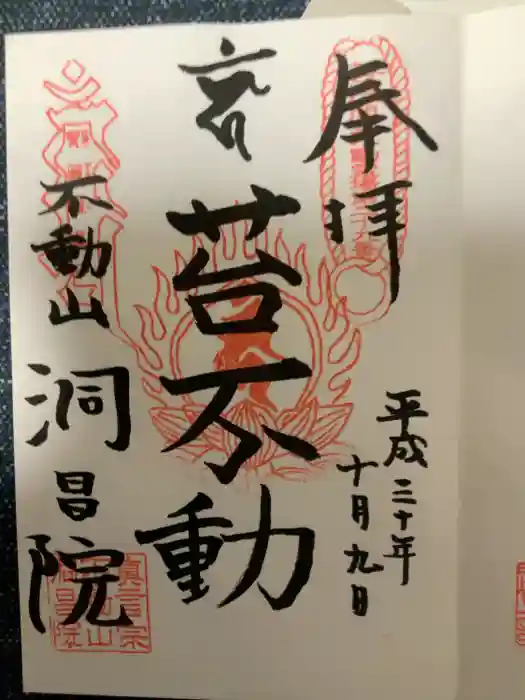 奉拝
平成三十年
十月九日
苔不動
不動山
洞昌院
眞言宗